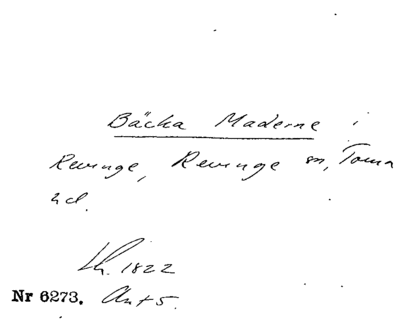 Bäcka Maderne i
Revinge, Revinge sn, Torna
hd.
Lh. 1822
Nr 6273. Ant 5.